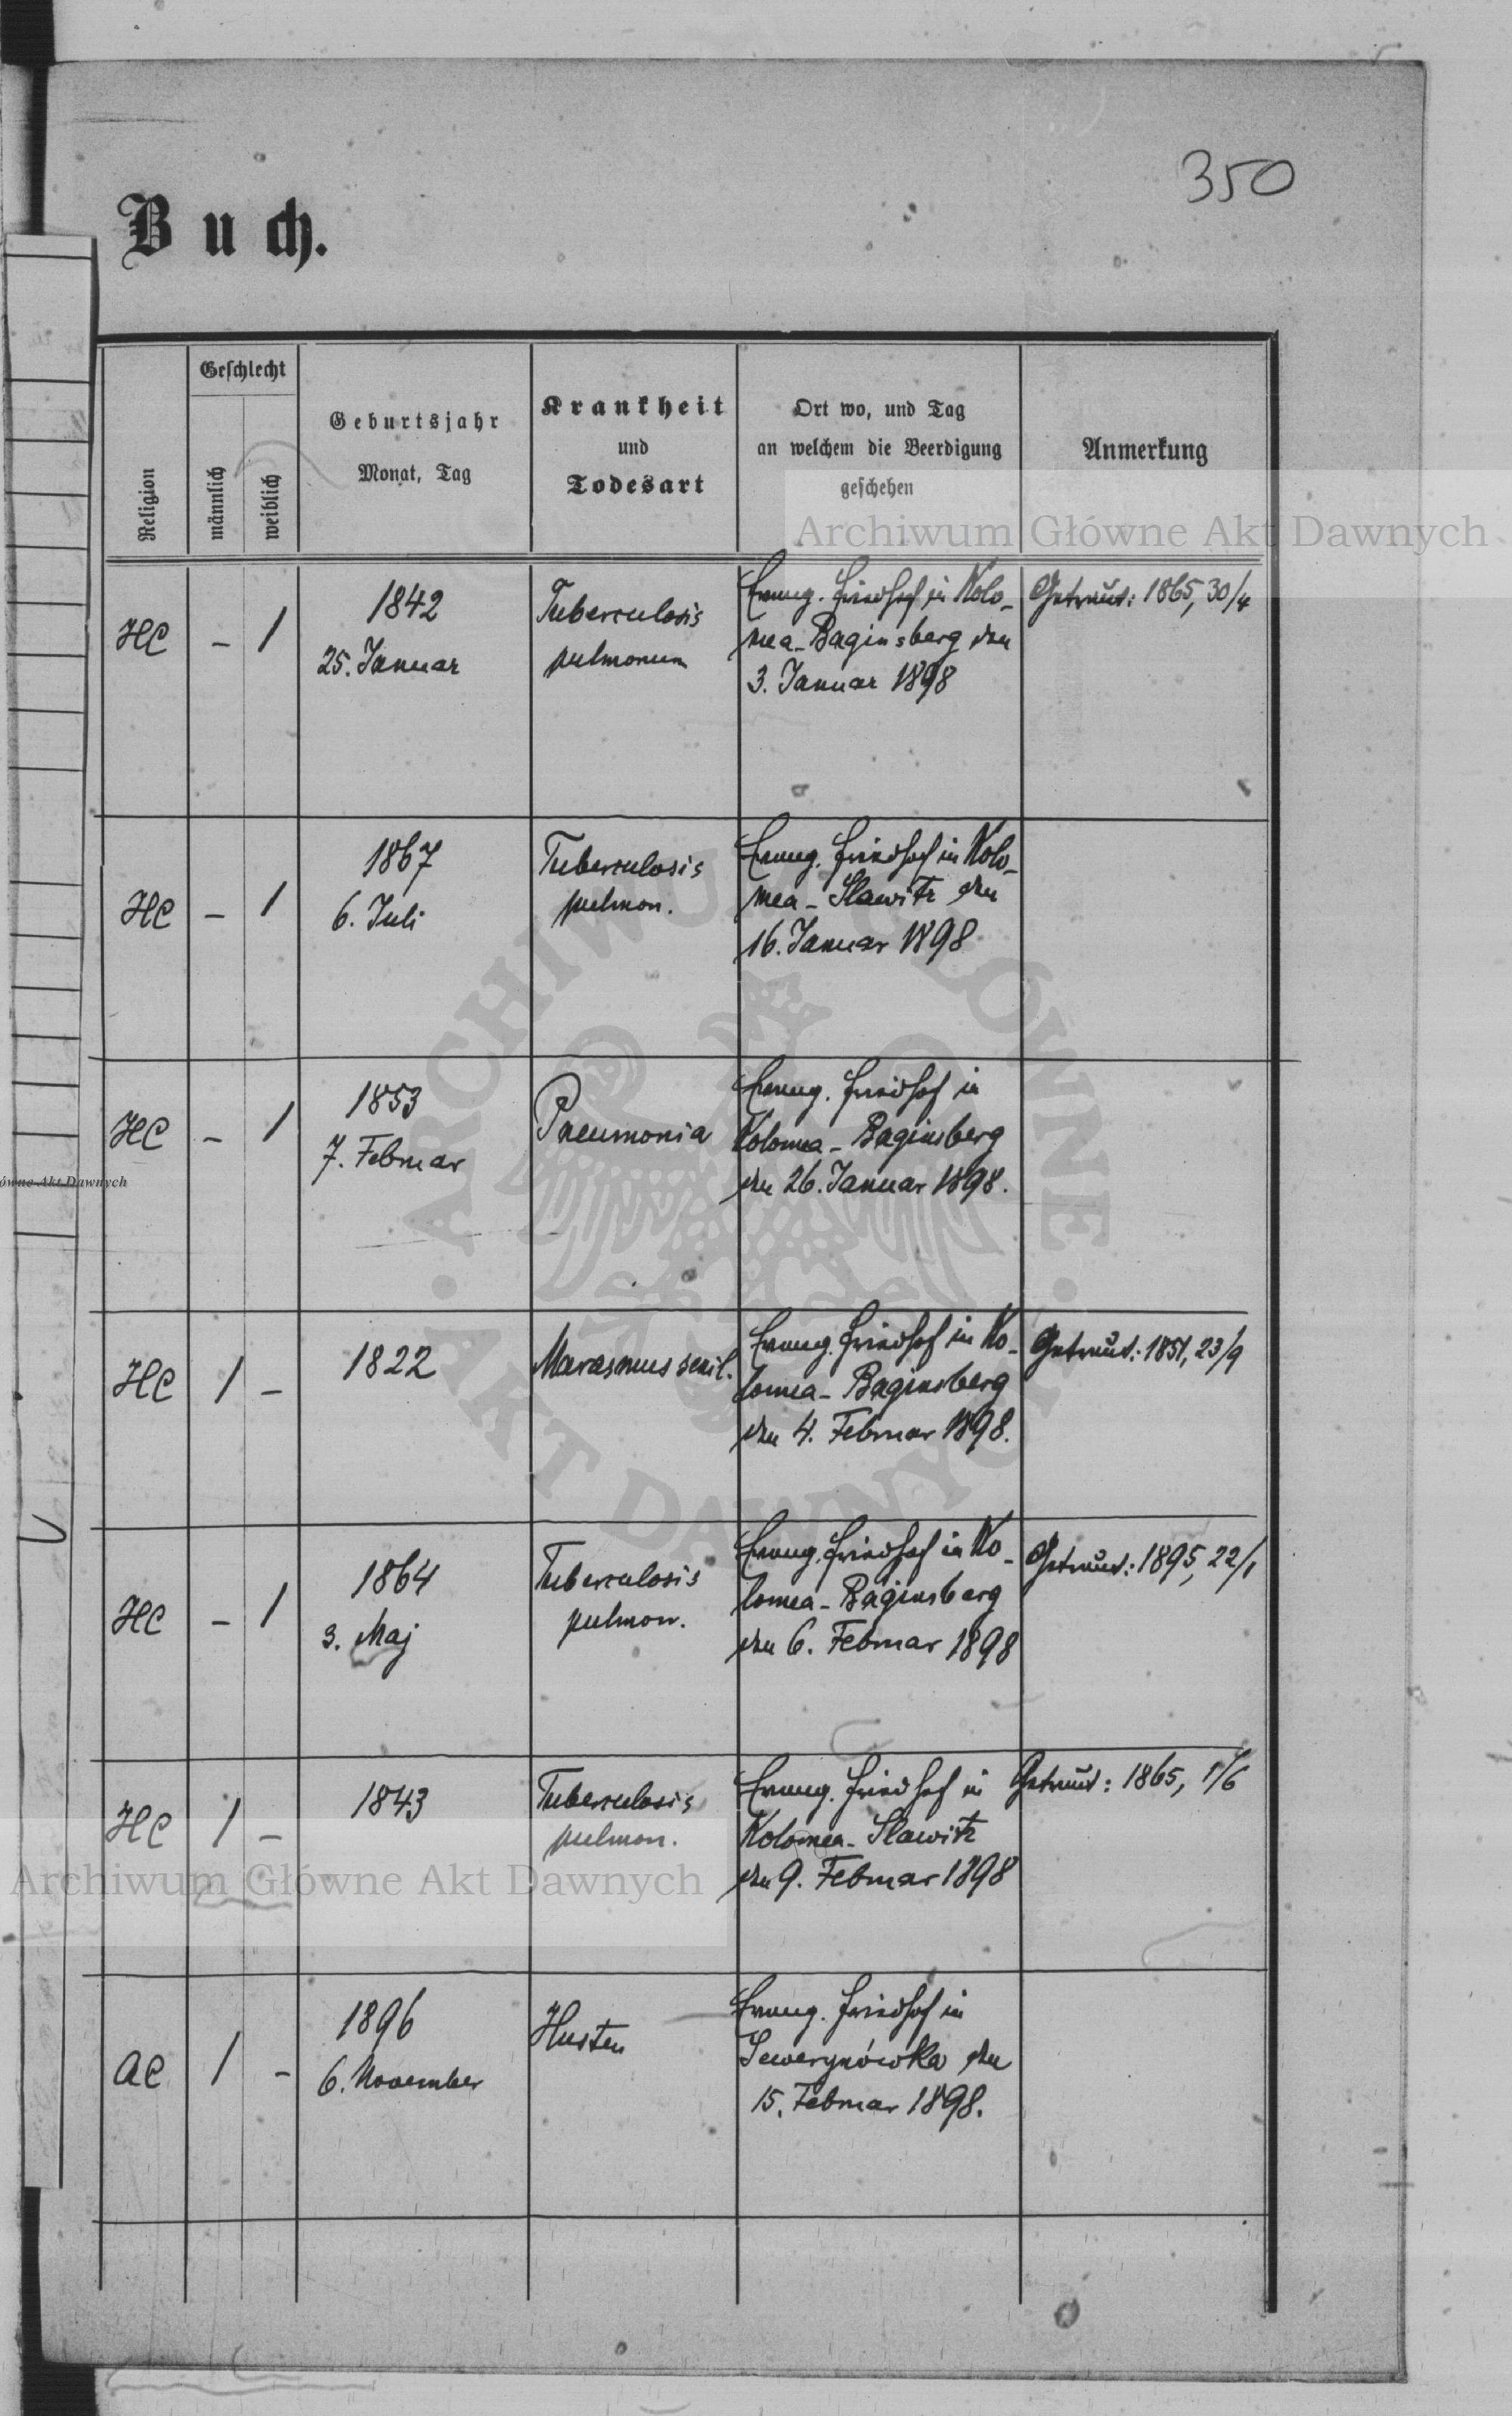 350
Buch.
Religion
Geschlecht
männlich
weiblich
Geburtsjahr
Monat, Tag
Krankheit
und
Todesart
Ort wo, und Tag
an welchem die Beerdigung
geschehen
Anmerkung
Archiwum Główne Akt Dawnych
HC
-
1
1842
25. Januar
Tuberculosis
pulmonum
Evang. Friedhof in Kolo-
mea-Baginsberg den
3. Januar 1898
Getraut: 1865, 30/4
HC
-
1
1867
6. Juli
Tuberculosis
pulmon.
Evang. Friedhof in Kolo-
mea-Slawitz den
16. Januar 1898
HC
-
1
1853
7. Februar
Pneumonia
Evang. Friedhof in
Kolomea-Baginsberg
den 26. Januar 1898.
ówne Akt Dawnych
HC
1
-
1822
Marasmus senil.
Evang. Friedhof in Ko-
lomea-Baginsberg
den 4. Februar 1898.
Getraut: 1851, 23/9
HC
-
1
1864
3. Maj
Tuberculosis
pulmon.
Evang. Friedhof in Ko-
lomea-Baginsberg
den 6. Februar 1898
Getraut: 1895, 22/1
HC
1
-
1843
Tuberculosis
pulmon.
Evang. Friedhof in
Kolomea-Slawitz
den 9. Februar 1898
Getraut: 1865, 1/6
Archiwum Główne Akt Dawnych
AC
1
-
1896
6. November
Husten
Evang. Friedhof in
Sewerynówka den
15. Februar 1898.
ARCHIWUM GŁÓWNE
AKT DAWNYCH